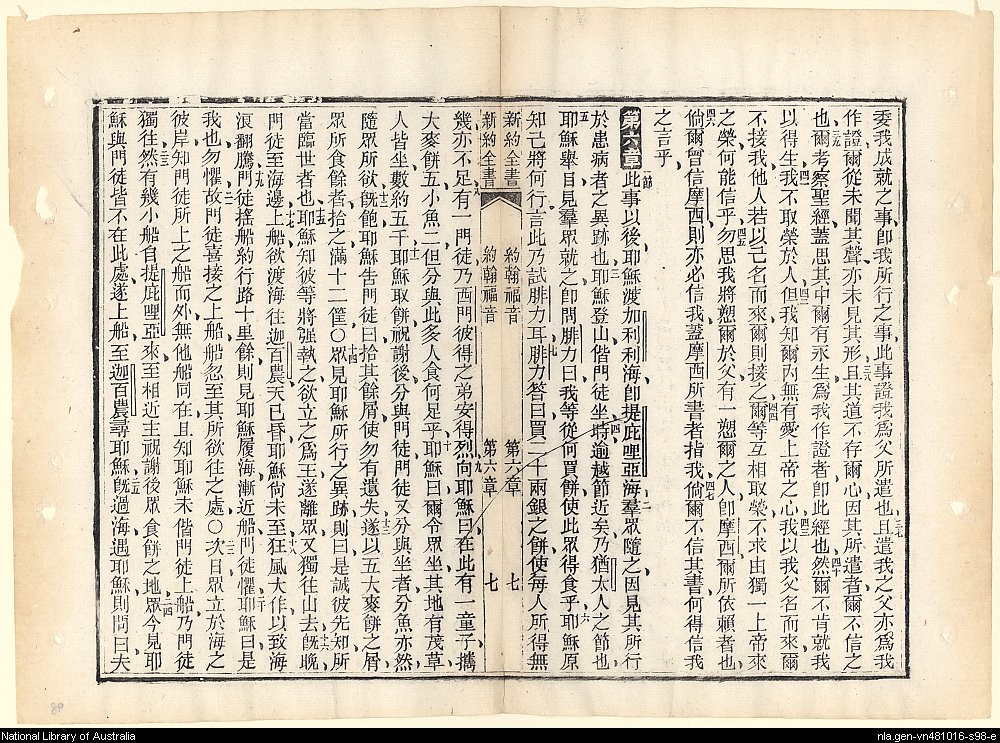 委我成就之事卽我所行之事此事證我爲父所遣也且遣我之父亦爲我
作證爾從未聞其聲亦未見其形且其道不存爾心因其所遣者爾不信之
也爾考察聖經蓋思其中爾有永生爲我作證者卽此經也然爾不肯就我
以得生我不取榮於人但我知爾內無有愛上帝之心我以我父名而來爾
不接我他人若以己名而來爾則接之爾等互相取榮不求由獨一上帝來
之榮何能信乎勿思我將愬爾於父有一愬爾之人卽摩西爾所依賴者也
倘爾曾信摩西則亦必信我蓋摩西所書者指我倘爾不信其書何得信我
之言乎
第六章 一節 此事以後耶穌渡加利利海卽提庇哩亞海羣眾隨之因見其所行
於患病者之異跡也耶穌登山偕門徒坐時逾越節近矣乃猶太人之節也
耶穌舉目見羣眾就之卽問腓力曰我等從何買餅使此眾得食乎耶穌原
知己將何行言此乃試腓力耳腓力答曰買二十兩銀之餅使每人所得無
新約全書 約翰福音 第六章 七
新約全書 約翰福音 第六章 七
幾亦不足有一門徒乃西門彼得之弟安得烈向耶穌曰在此有一童子攜
大麥餅五小魚二但分與此多人食何足乎耶穌曰爾令眾坐其地有茂草
人皆坐數約五千耶穌取餅祝謝後分與門徒門徒又分與坐者分魚亦然
隨眾所欲旣飽耶穌告門徒曰拾其餘屑使勿有遺失遂以五大麥餅之屑
眾所食餘者拾之滿十二筐○眾見耶穌所行之異跡則曰是誠彼先知所
當臨世者也耶穌知彼等將强執之欲立之爲王遂離眾又獨往山去旣晚
門徒至海邊上船欲渡海往迦百農天已昏耶穌尙未至狂風大作以致海
浪翻騰門徒搖船約行路十里餘則見耶穌履海漸近船門徒懼耶穌曰是
我也勿懼故門徒喜接之上船船忽至其所欲往之處○次日眾立於海之
彼岸知門徒所上之船而外無他船同在且知耶穌未偕門徒上船乃門徒
獨往然有幾小船自提庇哩亞來至相近主祝謝後眾食餅之地眾今見耶
穌與門徒皆不在此處遂上船至迦百農尋耶穌旣過海遇耶穌則問曰夫
98
National Library of Australia
nla.gen-vn481016-s98-e